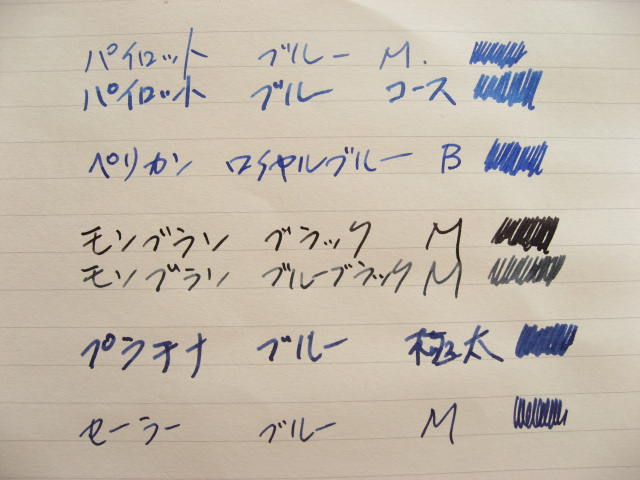 パイロット ブルー M.
パイロット ブルー コース
ペリカン ロイヤルブルー B
モンブラン ブラック M
モンブラン ブルーブラック M
プラチナ ブルー 極太
セーラー ブルー M